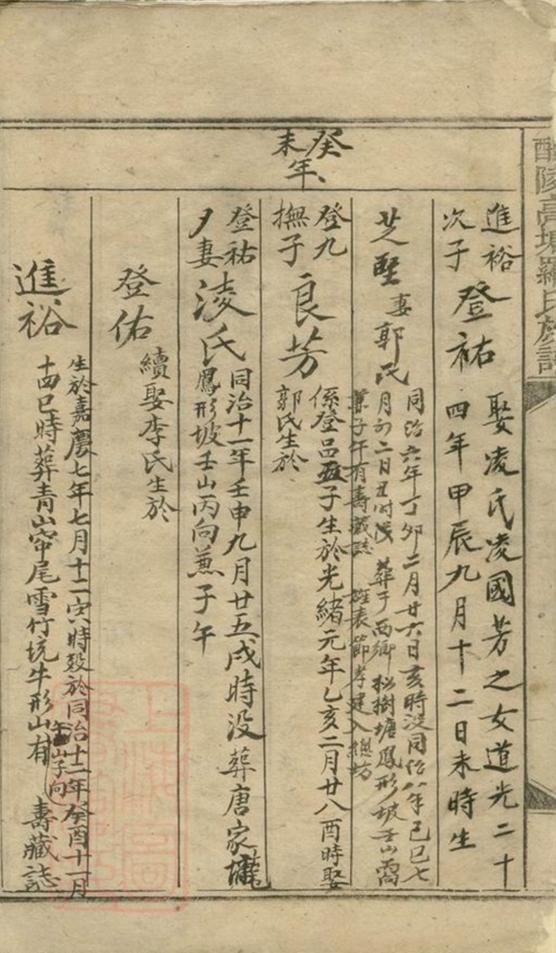 醴陵高塘羅氏族譜
癸未年、
進裕次子
登祐
娶凌氏凌國芳之女道光二十
四年甲辰九月十二日未時生
芝堅
妻郭氏
同治六年丁卯二月廿六日亥時沒同治八年己巳七
月初二日丑時沒 葬于西鄉松樹塘鳳形坡壬山丙
兼子午有壽藏誌 旌表節孝建入總坊
登九撫子
良芳
係登呂五子生於光緒元年乙亥二月廿八酉時娶
郭氏生於
登祐夕妻
凌氏
同治十一年壬申九月廿五戌時沒 葬唐家壠
鳳形坡壬山丙向兼子午
登佑
續娶李氏生於
進裕
生於嘉慶七年七月十二寅時歿於同治十二年癸酉十一月
十四巳時葬青山窂尾雪竹坑牛形山有 壽藏誌
午山子向